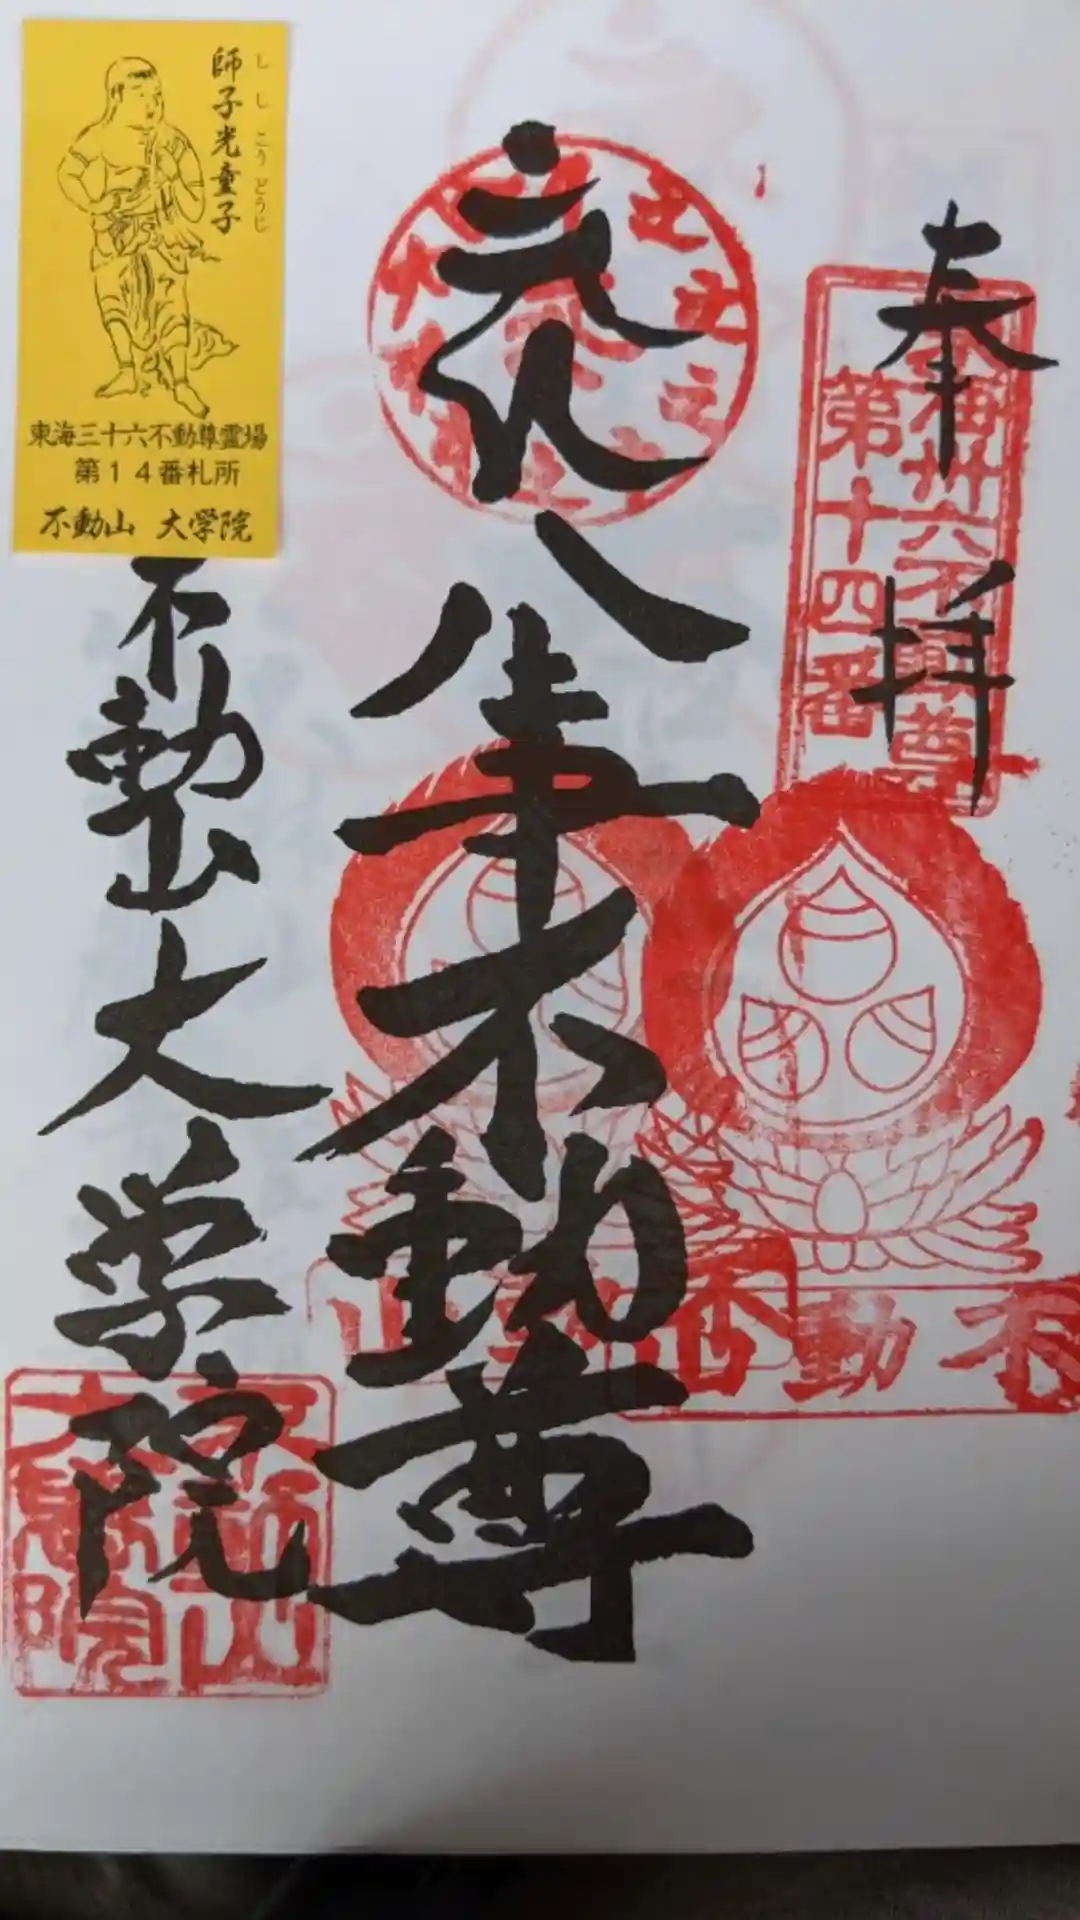 奉拝
東海卅六不動尊
第十四番
八事不動尊
不動山
不動山大学院
不動山
大學院
師子光童子
し し こう どうじ
東海三十六不動尊霊場
第14番札所
不動山 大学院